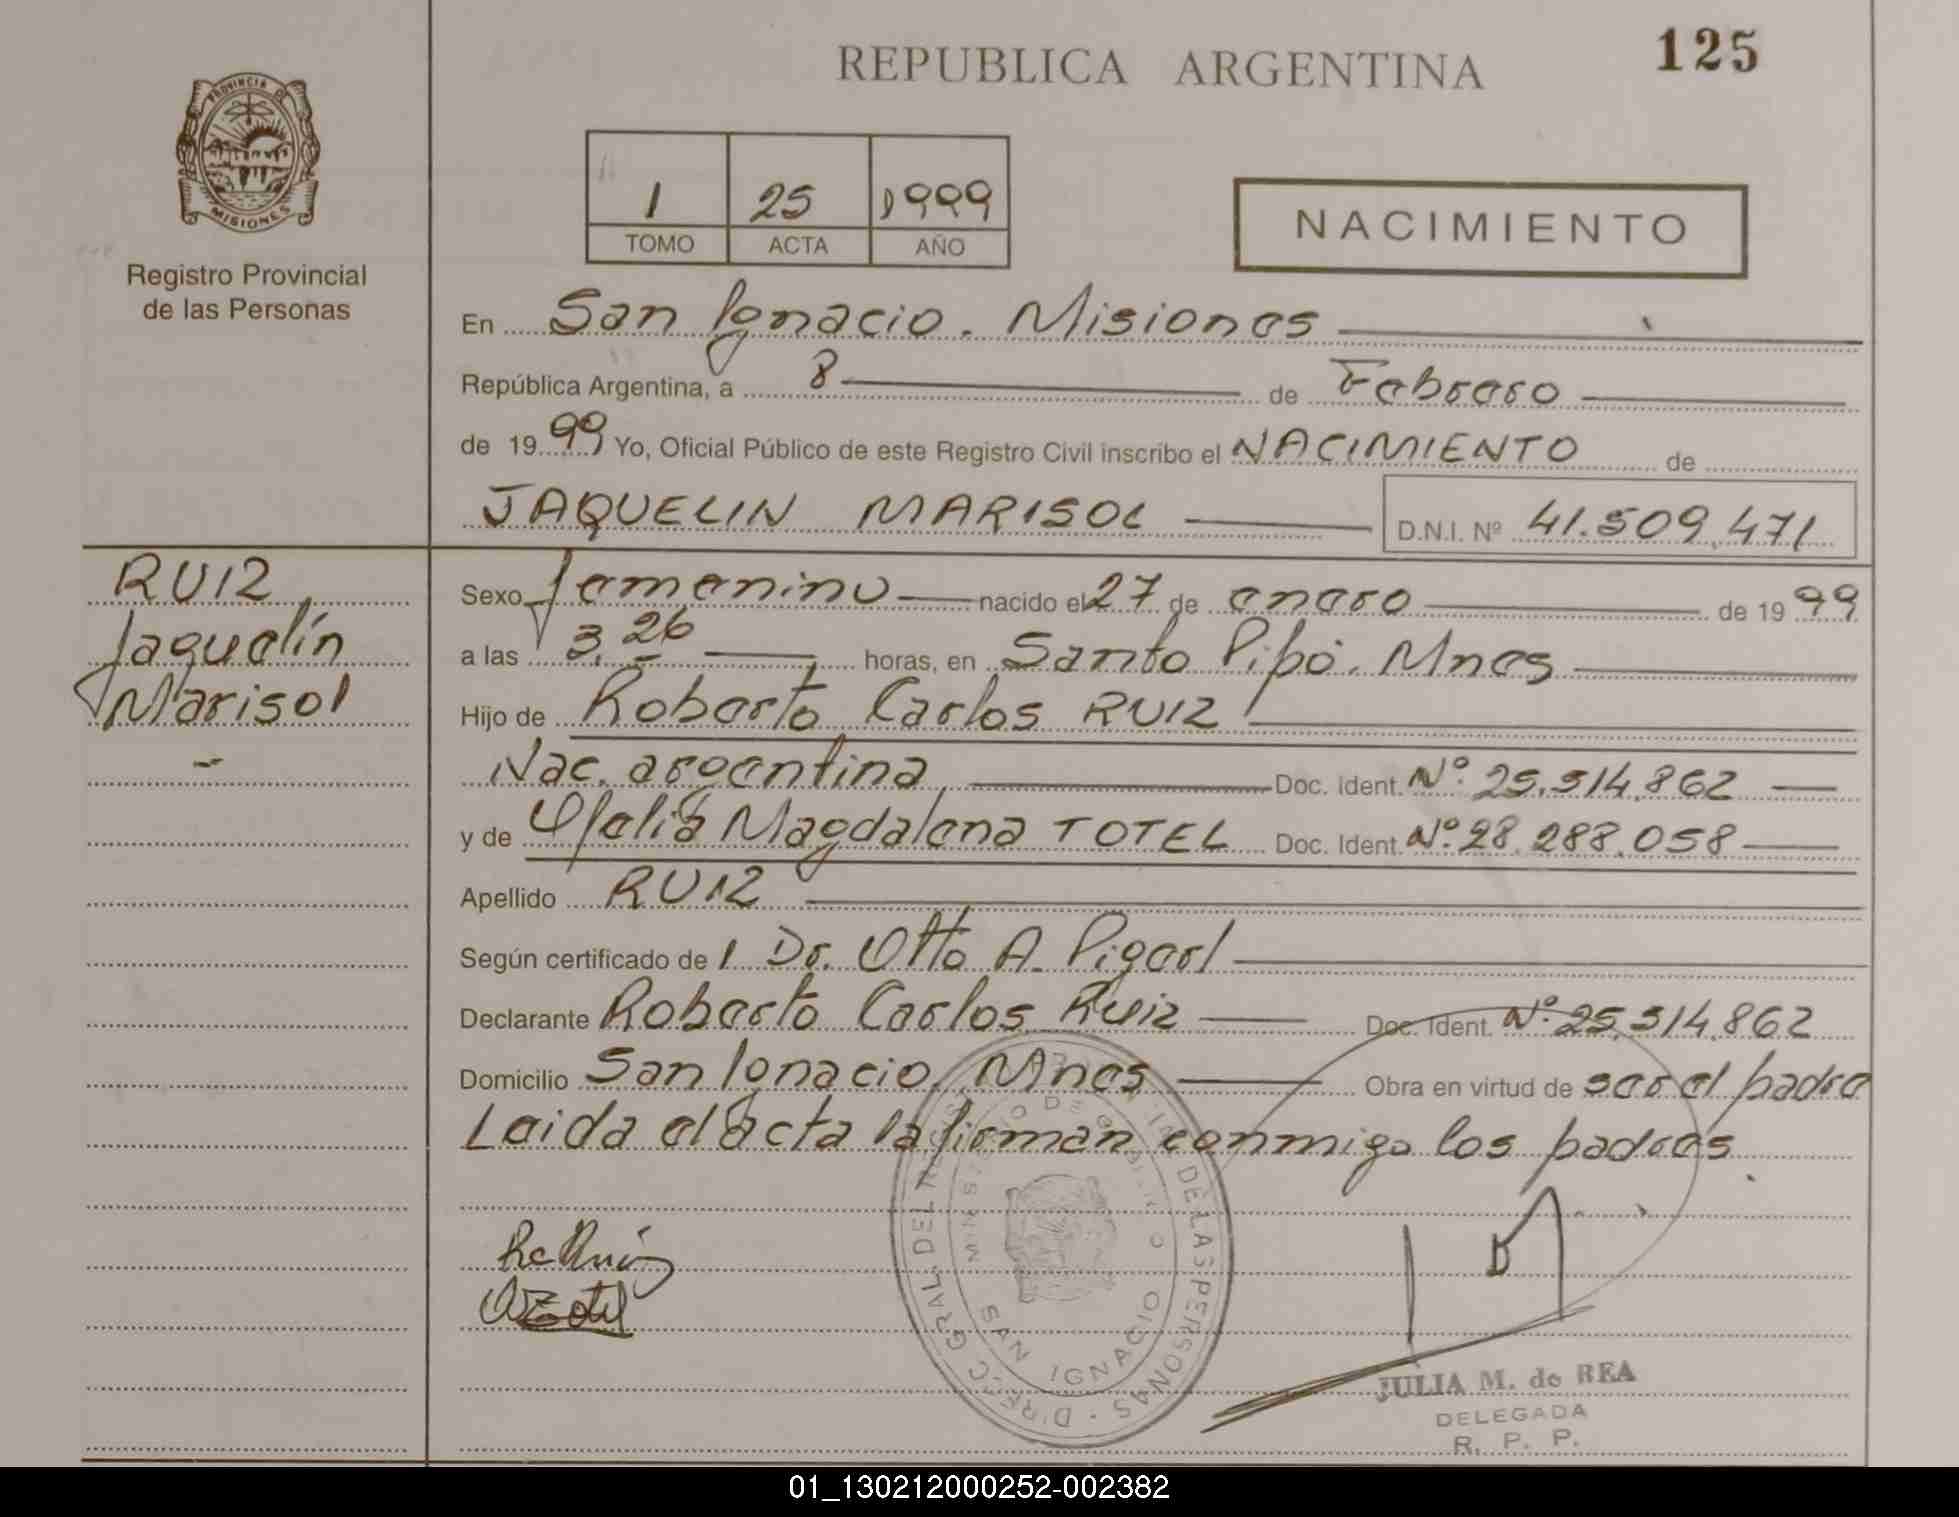 REPUBLICA ARGENTINA
125
PROVINCIA DE
MISIONES
Registro Provincial
de las Personas
1 25 1999
TOMO ACTA AÑO
NACIMIENTO
En San Ignacio. Misiones
República Argentina, a 8 de Febrero
de 1999 Yo, Oficial Público de este Registro Civil inscribo el NACIMIENTO de
JAQUELIN MARISOL D.N.I. Nº 41.509.471
RUIZ
Jaquelín
Marisol
Sexo femenino nacido el 27 de enero de 1999
a las 3,26 horas, en Santo Pipó. Mnes
Hijo de Roberto Carlos RUIZ
Nac. argentina Doc. Ident. Nº 25.314.862
y de Ofelia Magdalena TOTEL Doc. Ident. Nº 28.288.058
Apellido RUIZ
Según certificado de l Dr. Otto A. Pigerl
Declarante Roberto Carlos Ruiz Doc. Ident. Nº 25.314.862
Domicilio San Ignacio. Mnes Obra en virtud de ser el padre
Leida el acta la firman conmigo los padres.
DIREC. GRAL. DEL DE LAS PERSONAS
SAN IGNACIO
JULIA M. de REA
DELEGADA
R. P. P.
01_130212000252-002382